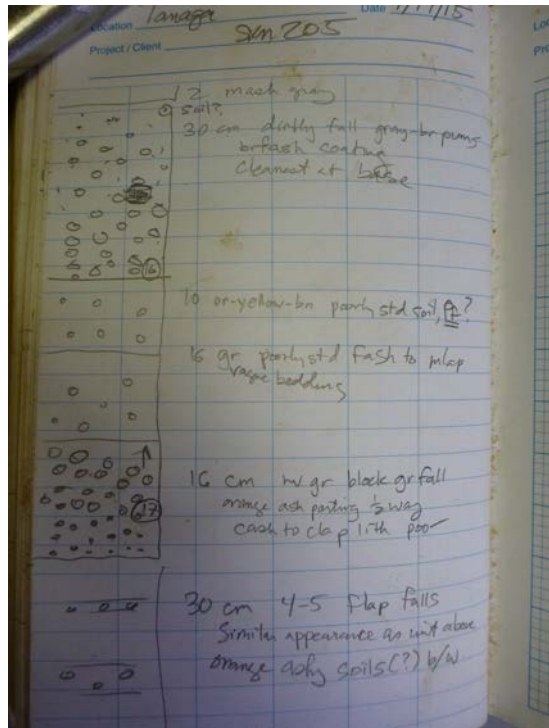 Location Tanaga Date 7/17/15
Project / Client SKN 205
12 mash gray
soil?
30 cm dirthy fall gray-br pums
br fash coating
Cleanest at base
16
10 or-yellow-bn poorly std soil, ?
15 gr poorly std Fash to mlap
vague bedding
16 cm inv gr block gr fall
orange ash parting 1/2 way
Cash to clap lith poor
17
30 cm 4-5 flap falls
Similar appearance as unit above
orange ashy soils(?) b/w
Lo
Pro